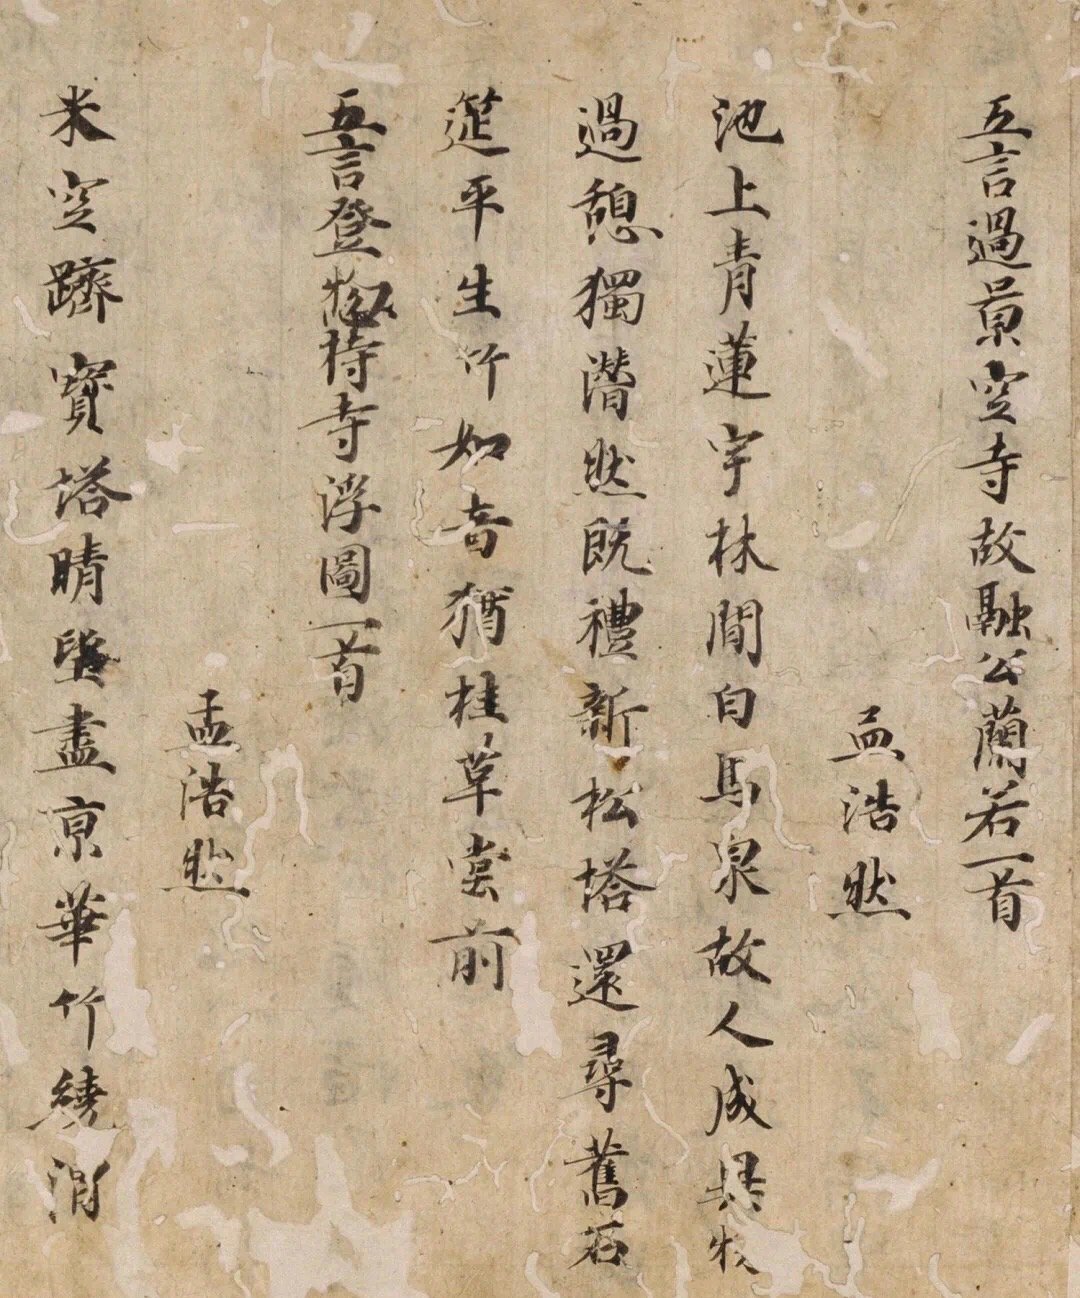 五言過景空寺故融公蘭若一首
孟浩然
池上青蓮宇林間白馬泉故人成異物
過憩獨潸然既禮新松塔還尋舊石
筵平生竹如意猶桂草堂前
五言登惣持寺浮圖一首
孟浩然
半空躋寶塔晴望盡京華竹繞渭